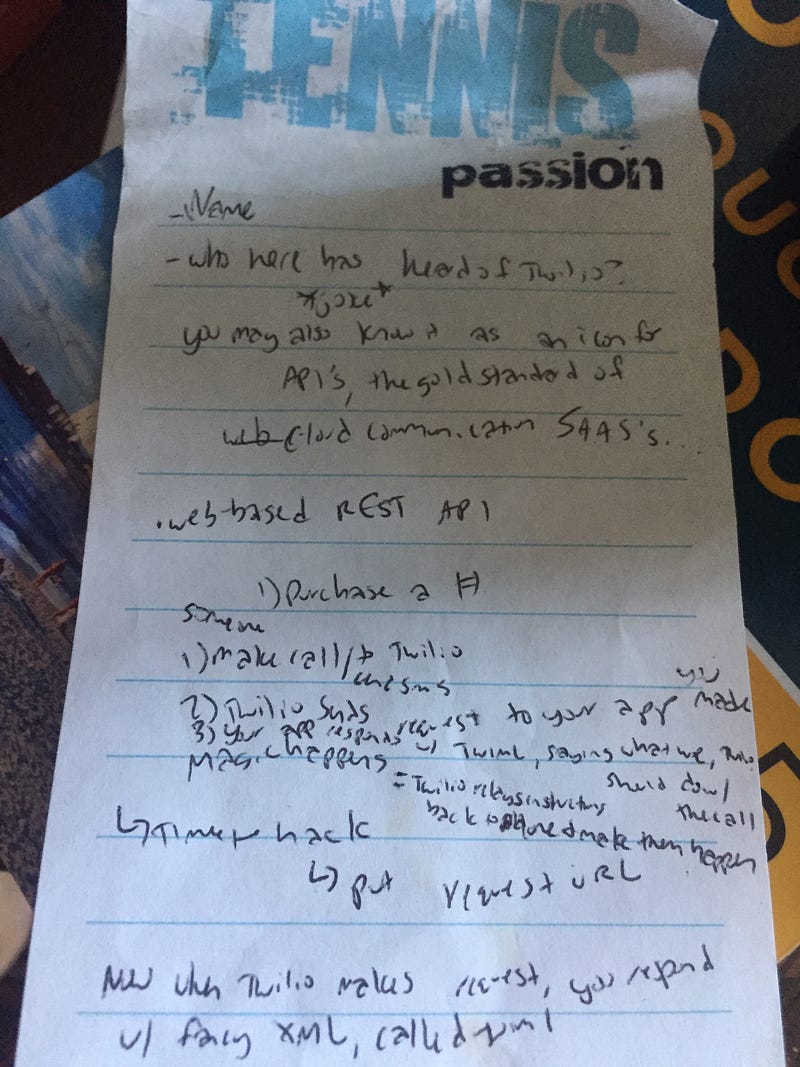 TENNIS
passion
- Name
- who here has heard of Twilio?
*joke*
you may also know it as an icon for
API's, the gold standard of
web cloud communication SAAS's...
. web-based REST API
1) purchase a #
someone
1) make call / to Twilio
2) Twilio sends request to your app you made
3) your app responds w/ TwiML, saying what we, Twilio
should do w/ the call
magic happens
= Twilio relays instructions
back to phone & make them happen
↳ Timer hack
↳ put request URL
Now when Twilio makes request, you respond
w/ fancy XML, called twiml